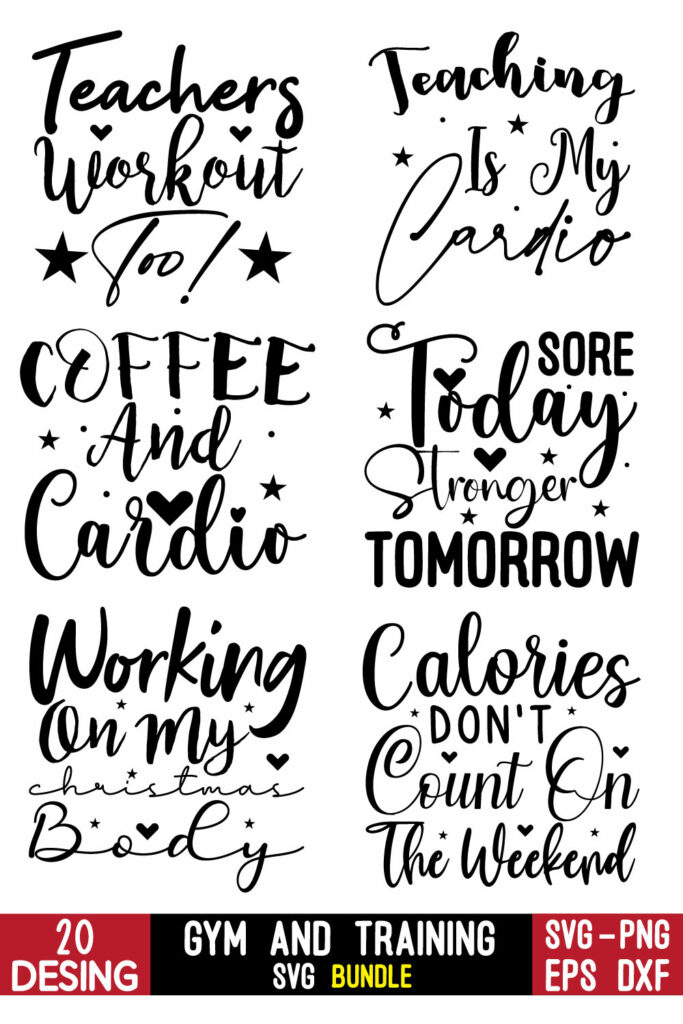 Teachers
Workout
Too!
Teaching
Is My
Cardio
COFFEE
And
Cardio
SORE
Today
Stronger
TOMORROW
Working
On My
christmas
Body
Calories
DON'T
Count On
The Weekend
20
DESING
GYM AND TRAINING
SVG BUNDLE
SVG-PNG
EPS DXF